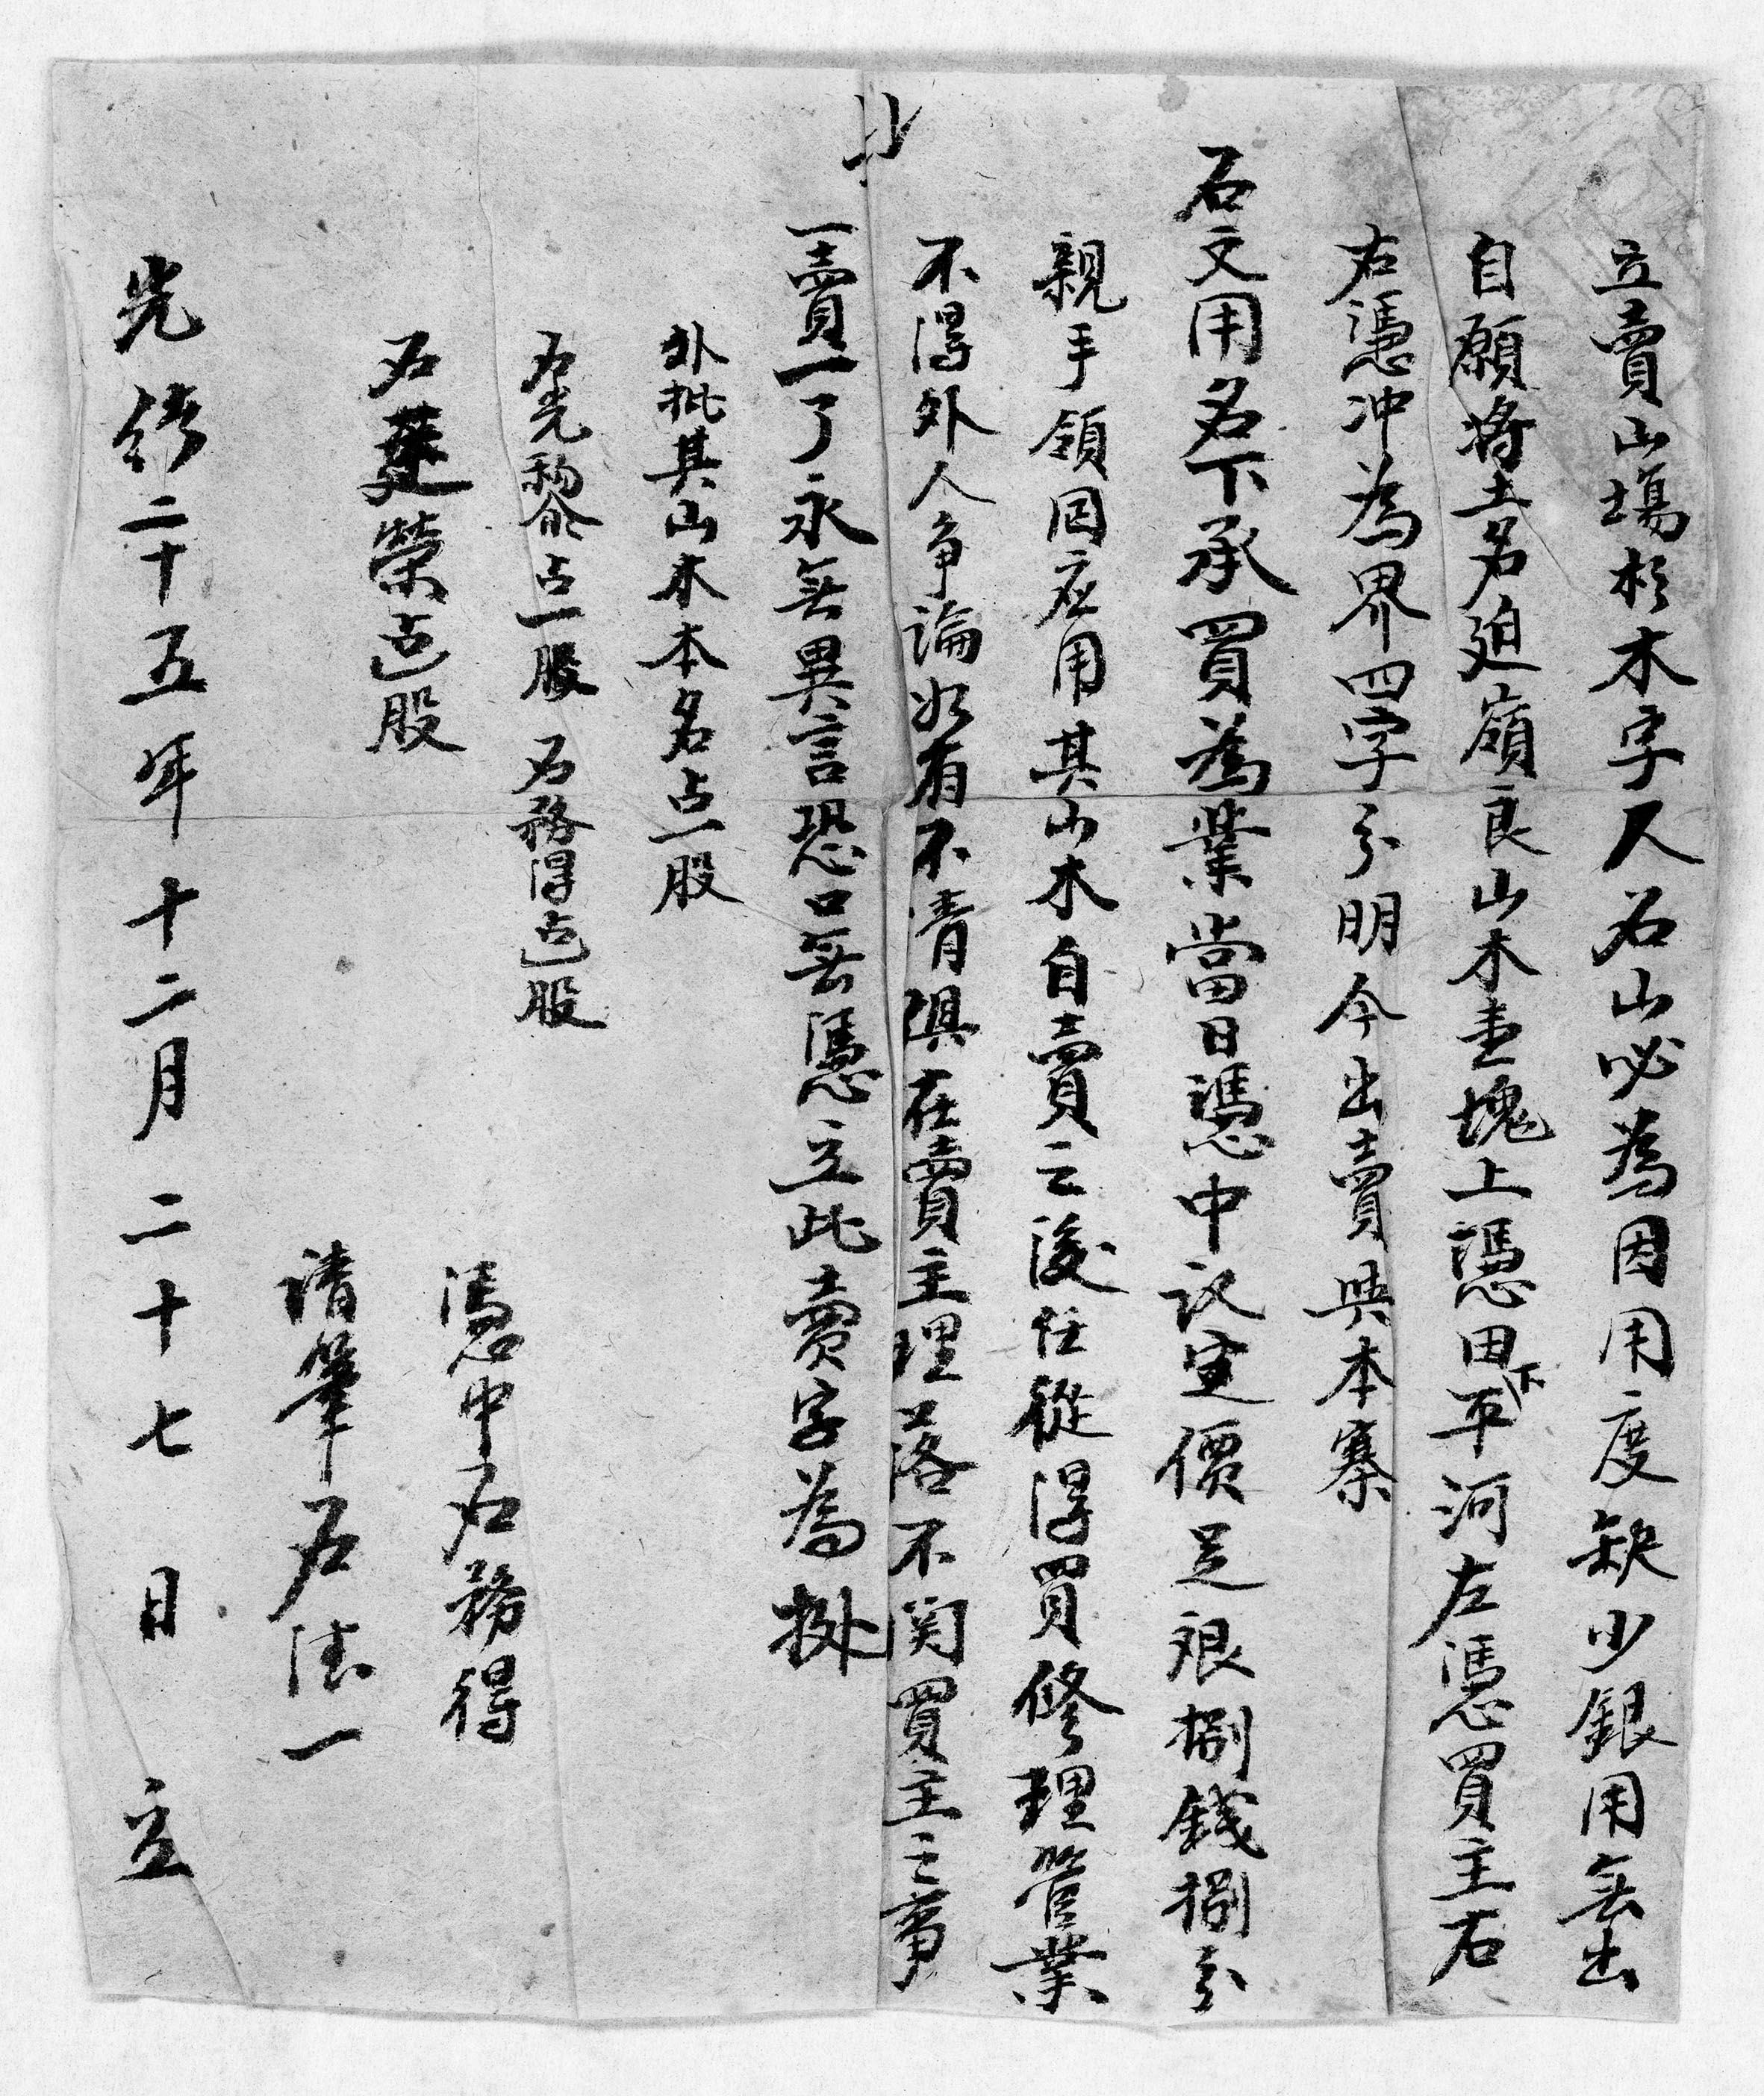 立賣山塲杉木字人石山必為因用度缺少銀用無出
自願將土名廹嶺良山木壹塊上憑田下平河左憑買主石
右憑冲為界四字分明今出賣與本寨
石文用名下承買為業當日憑中议定價足艮捌錢捌分
親手領回应用其山木自賣之後任從得買修理管業
不得外人争論如有不清俱在賣主理落不関買主之事
一賣一了永無異言恐口無憑立此賣字為掀
外批其山木本名占一股
石光黎占一股 石務得占一股
石廷榮占一股
憑中石務得
请筆石法一
光緒二十五年十二月二十七日 立